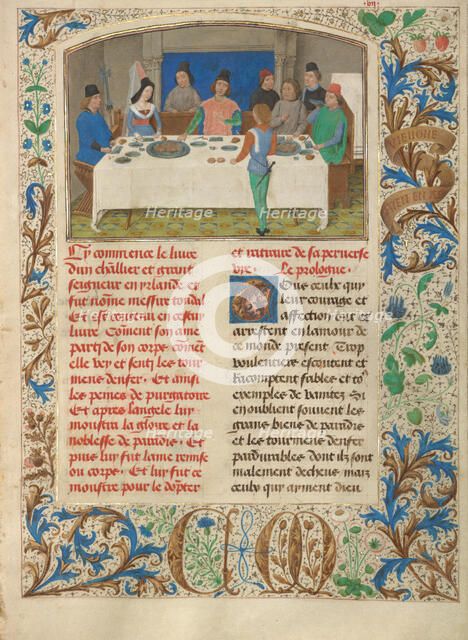 vii
Cy commence le livre
dun chlľier et grant
seigneur en yrlande et
fut nõme messire tondal
Et est contenu en cestuy
livre Cõment son ame
party de son corps cõmẽt
elle vey et senti les tour
mens denfer Et ainsi
les peines de purgatoire
Et apres langele luy
monstra la gloire et la
noblesse de paradis Et
puis luy fut lame remise
ou corps Et luy fut ce
monstre pour le deptir
et retraire de sa perverse
vie Le prologue
Que ceulx qui
leur courage et
affection ont et
arrestent en lamour de
ce monde present Trop
voulentiers escoutent et
Racomptent fables et
exemples de vanitez Si
en oublient souvent les
grans biens de paradis
et les tourmens denfer
pardurables dont ilz sont
malement deceus mais
ceulx qui ayment dieu
BIEN EN A
C M
Heritage
Heritage
Heritage
Heritage
Heritage
Images